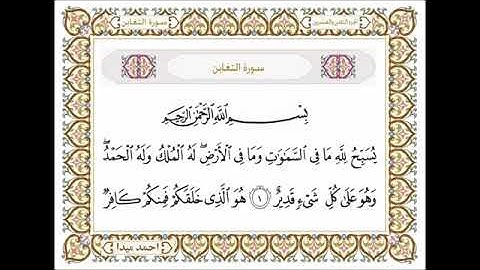 سورة التغابن
الجزء الثامن والعشرين
سورة التغابن
بِسْمِ ٱللَّهِ ٱلرَّحْمَٰنِ ٱلرَّحِيمِ
يُسَبِّحُ لِلَّهِ مَا فِى ٱلسَّمَٰوَٰتِ وَمَا فِى ٱلْأَرْضِ ۖ لَهُ ٱلْمُلْكُ وَلَهُ ٱلْحَمْدُ ۖ
وَهُوَ عَلَىٰ كُلِّ شَىْءٍ قَدِيرٌ ١ هُوَ ٱلَّذِى خَلَقَكُمْ فَمِنكُمْ كَافِرٌ
احمد ميدا